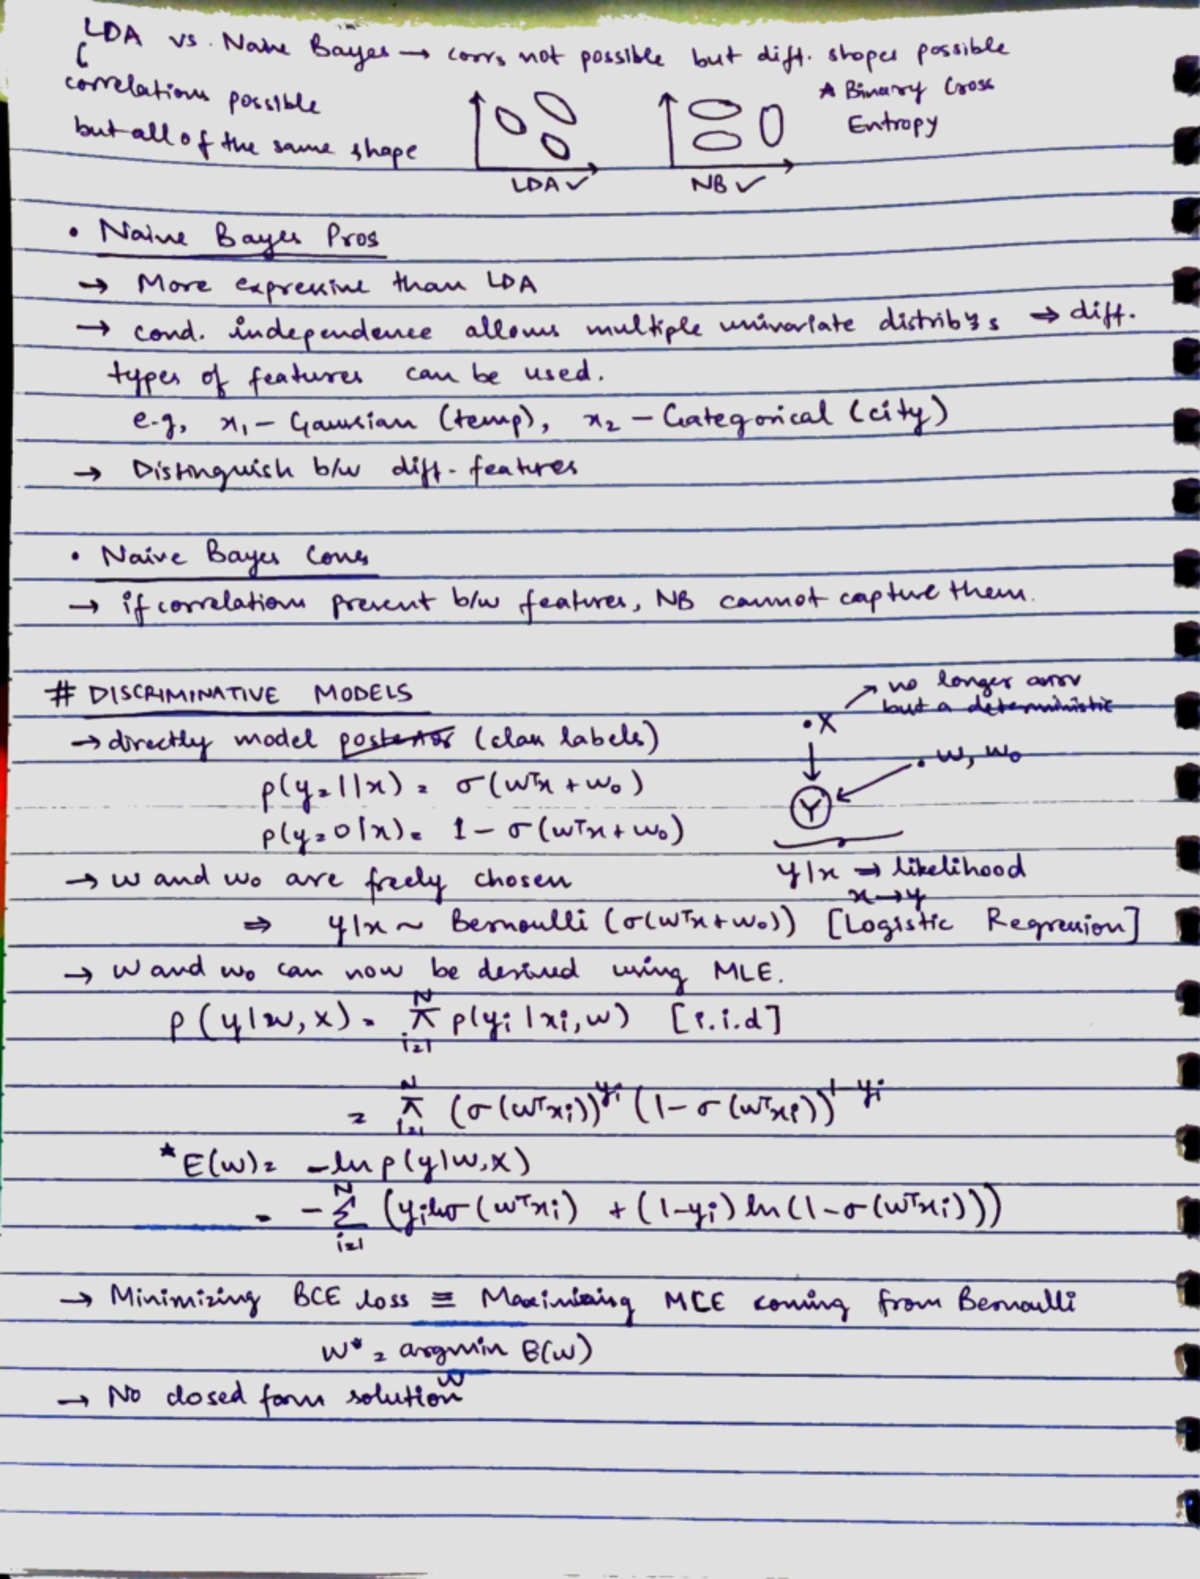 LDA vs. Naive Bayes → corrs not possible but diff. shapes possible
correlations possible
but all of the same shape
LDA ✓
NB ✓
* Binary Cross
Entropy
• Naive Bayes Pros
→ More expressive than LDA
→ cond. independence allows multiple univariate distribⁿs ⇒ diff.
types of features can be used.
e.g, x₁ – Gaussian (temp), x₂ – Categorical (city)
→ Distinguish b/w diff. features
• Naive Bayes Cons
→ if correlations present b/w features, NB cannot capture them.
# DISCRIMINATIVE MODELS
→ directly model posterior (class labels)
p(y=1|x) = σ(wᵀx + w₀)
p(y=0|x) = 1 – σ(wᵀx + w₀)
no longer a rv
but a deterministic
• X
• w, w₀
Y
y|x ⇒ likelihood
x → y
→ w and w₀ are freely chosen
⇒ y|x ~ Bernoulli (σ(wᵀx + w₀)) [Logistic Regression]
→ w and w₀ can now be desired using MLE.
p(y|w, X) = π_{i=1}^{N} p(yᵢ|xᵢ, w) [i.i.d]
= π_{i=1}^{N} (σ(wᵀxᵢ))^{yᵢ} (1 – σ(wᵀxᵢ))^{1–yᵢ}
* E(w) = – ln p(y|w, X)
= – Σ_{i=1}^{N} (yᵢ ln σ(wᵀxᵢ) + (1–yᵢ) ln(1–σ(wᵀxᵢ)))
→ Minimizing BCE loss ≡ Maximising MLE coming from Bernoulli
w* = argmin E(w)
w
→ No closed form solution